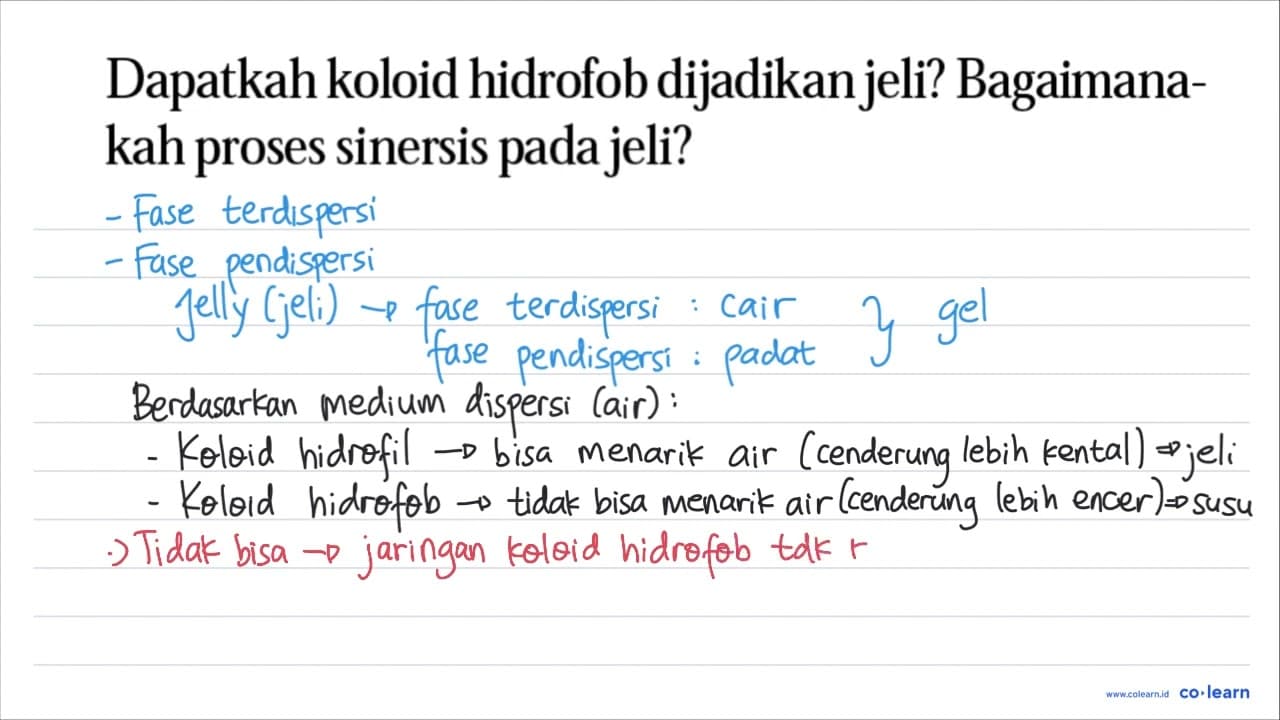 Dapatkah koloid hidrofob dijadikan jeli? Bagaimana-
kah proses sinersis pada jeli?
- Fase terdispersi
- Fase pendispersi
Jelly (jeli) → fase terdispersi : cair } gel
fase pendispersi : padat
Berdasarkan medium dispersi (air) :
- Koloid hidrofil → bisa menarik air (cenderung lebih kental) ⇒ jeli
- Koloid hidrofob → tidak bisa menarik air (cenderung lebih encer) ⇒ susu
·) Tidak bisa → jaringan koloid hidrofob tdk r
www.colearn.id co·learn